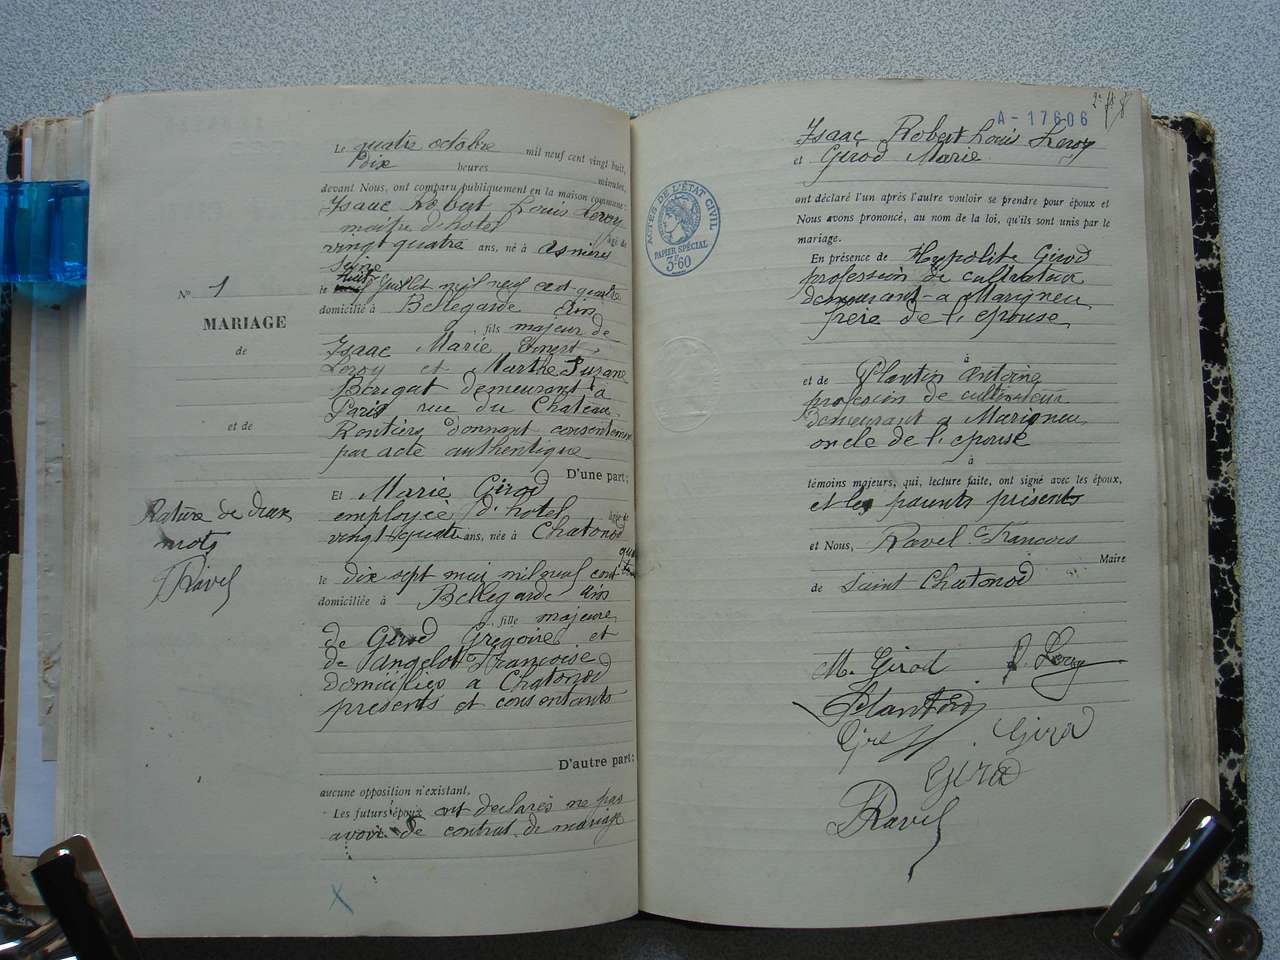 Nº 1
MARIAGE
de
et de
Rature de deux
mots
Ravel
Le quatre octobre mil neuf cent vingt huit,
Dix heures minutes,
devant Nous, ont comparu publiquement en la maison commune:
Isaac Robert Louis Leroy
maître d'hotel âgé de
vingt quatre ans, né à Asnières
Seine
le huit Juillet mil neuf cent quatre
domicilié à Bellegarde Ain
, fils majeur de
Isaac Marie Ernest
Leroy et Marthe Suzane
demeurant à
Paris rue du Chateau
Rentiers donnant consentement
par acte authentique
D'une part;
Et Marie Girod
employée d'hotel âgée de
vingt quatre ans, née à Chatonod
le dix sept mai mil neuf cent quatre
domiciliée à Bellegarde Ain
, fille majeure
de Girod Gregoire et
de Tangelot Françoise
domiciliés a Chatonod
présents et consentants
D'autre part;
aucune opposition n'existant.
Les futurs époux ont déclarés ne pas
avoir de contrat de mariage
A-17606
Isaac Robert Louis Leroy
et Girod Marie
ont déclaré l'un après l'autre vouloir se prendre pour époux et
Nous avons prononcé, au nom de la loi, qu'ils sont unis par le
mariage.
En présence de Hypolite Girod
profession de cultivateur
demeurant a Marigneu
frère de l'épouse
à
et de Plantin Antoine
profession de cultivateur
Demeurant a Marigneu
oncle de l'épouse
à
témoins majeurs, qui, lecture faite, ont signé avec les époux,
et les parents présents
et Nous, Ravel François
Maire
de Saint Chatonod
M. Girod R. Leroy
Plantin
Girod
Girod
Ravel
ACTES DE L'ÉTAT CIVIL
PAPIER SPÉCIAL
3f60